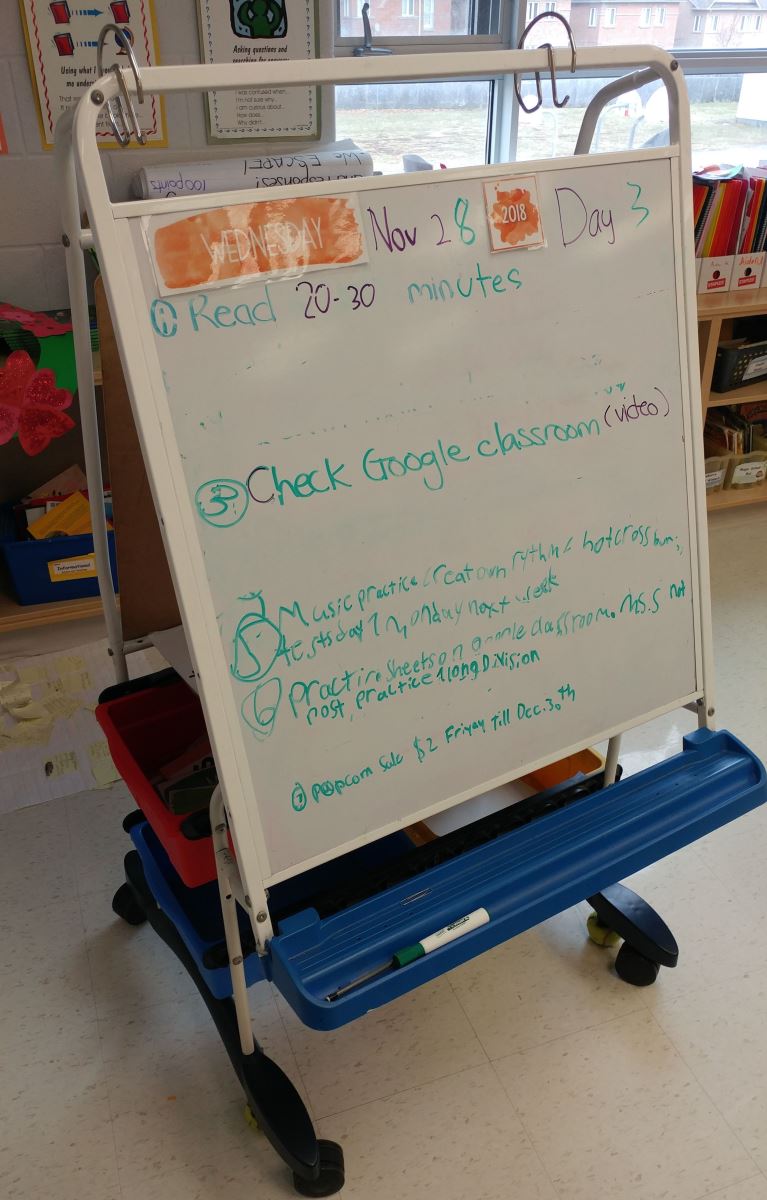 Using what I
me under
Asking questions and
was confused when...
I'm not sure why...
I am curious about...
How does...
Why didn't...
We ESCAPE!
and responses!
100points
WEDNESDAY Nov 28 2018 Day 3
① Read 20-30 minutes
③ Check Google classroom (video)
Music practice creat own rythm & hotcross buns,
5 tests day 1 monday next week
⑥ practice sheets on google classroom. Ms.S not
post, practice long Division
⑦ popcorn sale $2 Friyay Till Dec. 30th
Informational